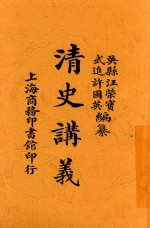 吳縣汪榮寶
武進許國英編纂
清史講義
上海商務印書館印行